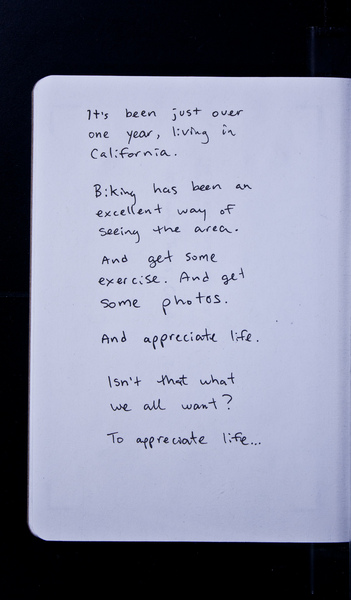 It's been just over
one year, living in
California.
Biking has been an
excellent way of
seeing the area.
And get some
exercise. And get
some photos.
And appreciate life.
Isn't that what
we all want?
To appreciate life...